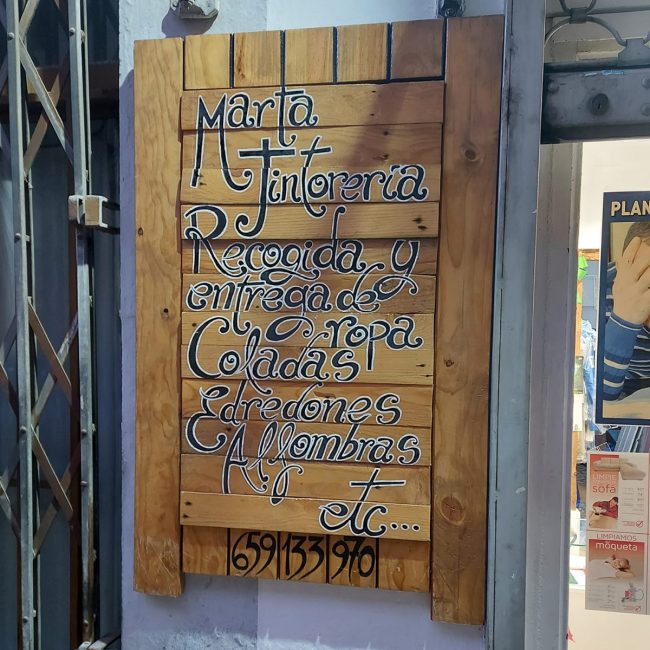 Marta
Tintorería
Recogida y
entrega de
ropa
Coladas
Edredones
Alfombras
etc...
659 133 970
PLAN
sofá
LIMPIAMOS
moqueta